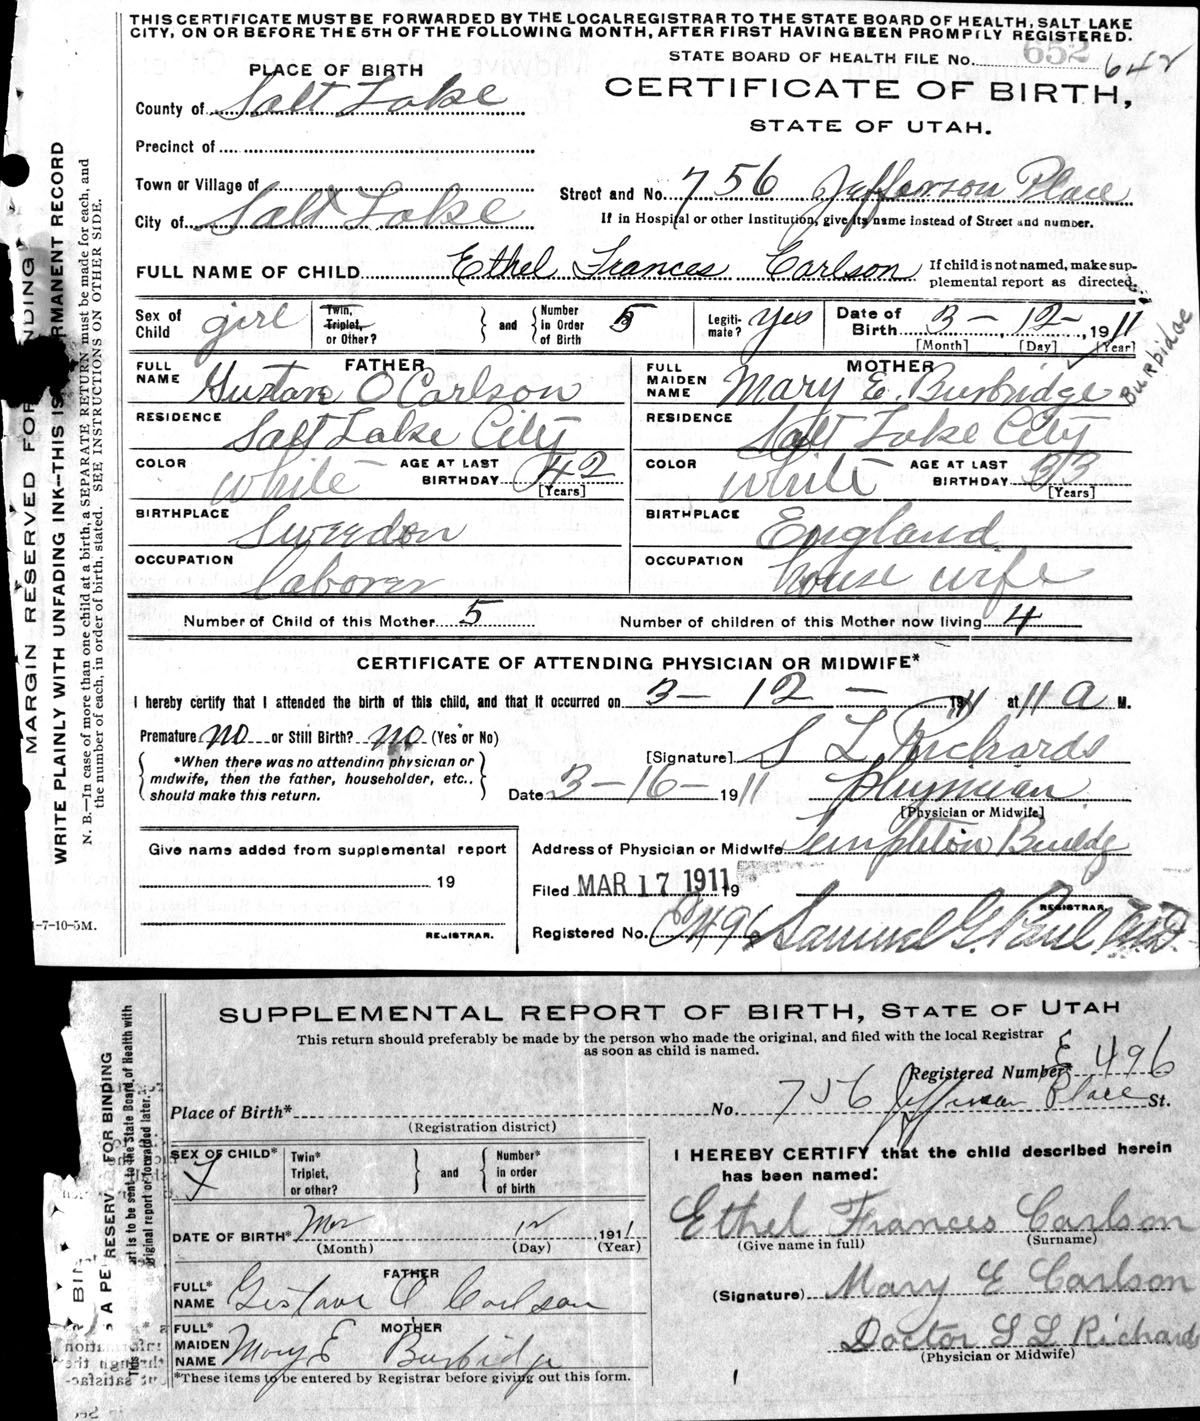 THIS CERTIFICATE MUST BE FORWARDED BY THE LOCAL REGISTRAR TO THE STATE BOARD OF HEALTH, SALT LAKE
CITY, ON OR BEFORE THE 5TH OF THE FOLLOWING MONTH, AFTER FIRST HAVING BEEN PROMPTLY REGISTERED.
STATE BOARD OF HEALTH FILE No. 652 642
PLACE OF BIRTH
CERTIFICATE OF BIRTH,
STATE OF UTAH.
County of Salt Lake
Precinct of
Town or Village of
City of Salt Lake
Street and No. 756 Jefferson Place
If in Hospital or other Institution, give its name instead of Street and number.
FULL NAME OF CHILD Ethel Frances Carlson
If child is not named, make sup-
plemental report as directed.
Sex of Child girl
Twin, Triplet, or Other?
and
Number in Order of Birth 5
Legiti-mate? yes
Date of Birth 3 - 12 - , 1911
[Month] [Day] [Year]
Burbidge
FATHER
FULL NAME Gustave O Carlson
RESIDENCE Salt Lake City
COLOR white AGE AT LAST BIRTHDAY 42 [Years]
BIRTHPLACE Sweedon
OCCUPATION laborer
MOTHER
FULL MAIDEN NAME Mary E. Burbidge
RESIDENCE Salt Lake City
COLOR white AGE AT LAST BIRTHDAY 33 [Years]
BIRTHPLACE England
OCCUPATION house wife
Number of Child of this Mother 5 Number of children of this Mother now living 4
CERTIFICATE OF ATTENDING PHYSICIAN OR MIDWIFE*
I hereby certify that I attended the birth of this child, and that it occurred on 3 - 12 - 1911 at 11 a M.
Premature no or Still Birth? no (Yes or No)
*When there was no attending physician or
midwife, then the father, householder, etc.,
should make this return.
[Signature] S L Richards
Date 3-16- 1911 Physician
[Physician or Midwife]
Address of Physician or Midwife Templeton Buildg
Give name added from supplemental report
19
REGISTRAR.
Filed MAR 17 1911 19
REGISTRAR
Registered No. E 496 Samuel G. Paul M.D.
1-7-10-5M.
MARGIN RESERVED FOR BINDING
WRITE PLAINLY WITH UNFADING INK—THIS IS PERMANENT RECORD
N. B.—In case of more than one child at a birth, a SEPARATE RETURN must be made for each, and
the number of each, in order of birth, stated. SEE INSTRUCTIONS ON OTHER SIDE.
SUPPLEMENTAL REPORT OF BIRTH, STATE OF UTAH
This return should preferably be made by the person who made the original, and filed with the local Registrar
as soon as child is named.
Registered Number E 496
Place of Birth* No. 756 Jefferson Place St.
(Registration district)
SEX OF CHILD* F
Twin* Triplet, or other?
and
Number* in order of birth
DATE OF BIRTH* Mar 12 1911
(Month) (Day) (Year)
FATHER
FULL* NAME Gustave O Carlson
MOTHER
FULL* MAIDEN NAME Mary E Burbidge
*These items to be entered by Registrar before giving out this form.
I HEREBY CERTIFY that the child described herein
has been named:
Ethel Frances Carlson
(Give name in full) (Surname)
(Signature) Mary E Carlson
Doctor S L Richards
(Physician or Midwife)